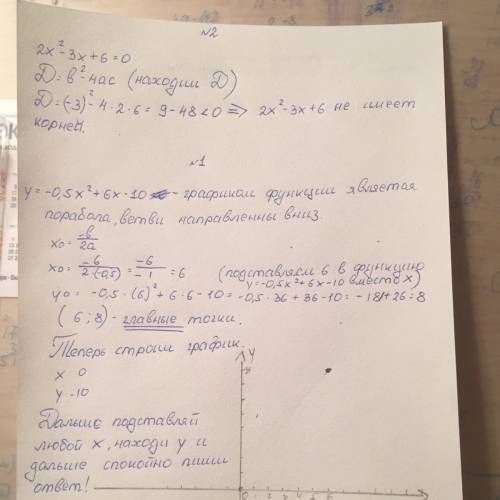 №2
2x²-3x+6=0
D=в²-4ас (находим D)
D=(-3)²-4·2·6=9-48<0 => 2x²-3x+6 не имеет
корней.
№1
y=-0,5x²+6x-10 - графиком функции является
порабола, ветви направленны вниз.
x0=-в/2a
x0=-6/2·(-0,5)=-6/-1=6 (подставляем 6 в функцию
y=-0,5x²+6x-10 вместо x)
y0=-0,5·(6)²+6·6-10=-0,5·36+36-10=-18+26=8
(6;8)-главные точки.
Теперь строим график.
x 0
y -10
y
Дальше подставляй
любой x, находи y и
дальше спокойно пиши
ответ!
0 2 4 6